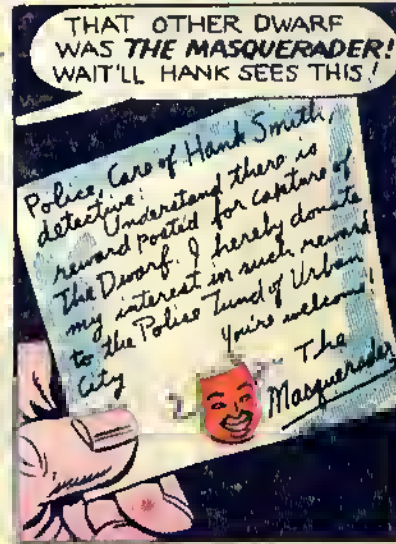 THAT OTHER DWARF
WAS THE MASQUERADER!
WAIT'LL HANK SEES THIS!
Police, Care of Hank Smith,
detective:
Understand there is
reward posted for capture of
The Dwarf. I hereby donate
my interest in such reward
to the Police Fund of Urban
City
You're welcome!
The
Masquerader